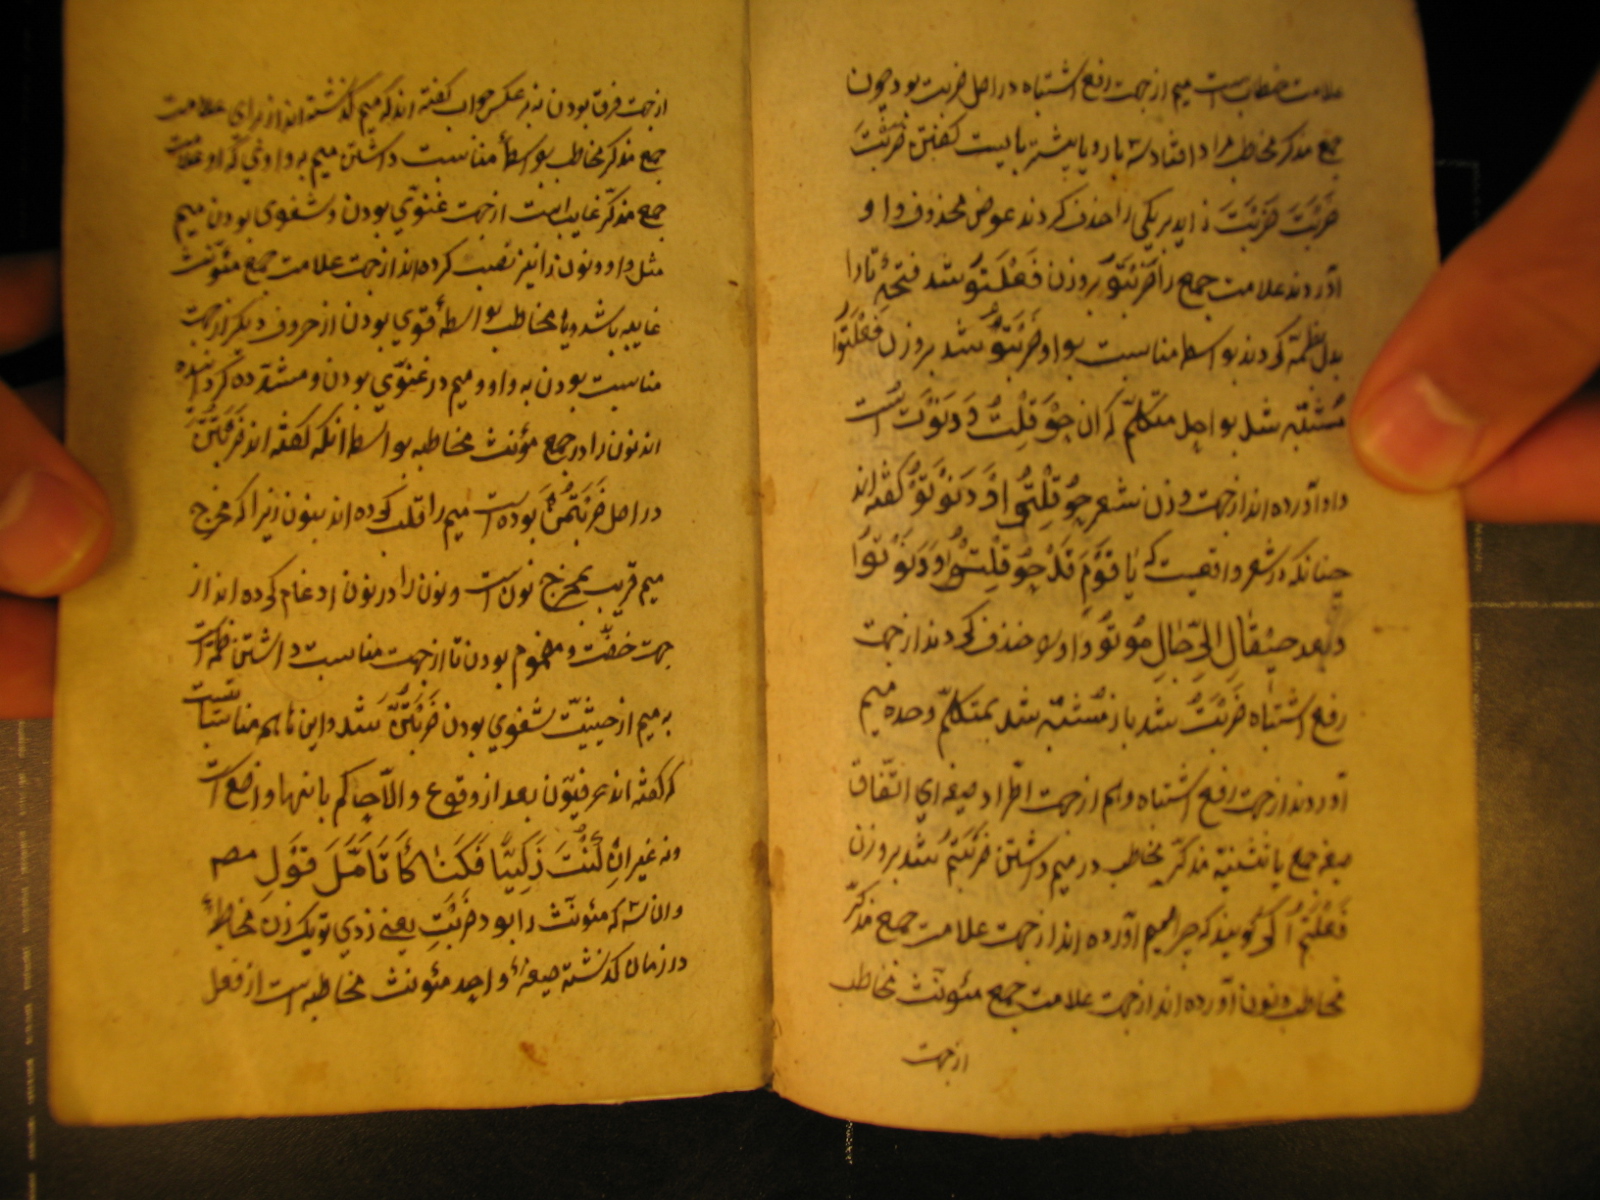 علامت خطاب است میم از جهت رفع اشتباه در اصل ضربت بود چون
جمع مذکر مخاطب مراد افتاد سه بار و یا بیشتر بایست گفتن ضَرَبْتَ
ضَرَبْتَ ضَرَبْتَ زاید بر یکی را حذف کردند عوض محذوف واو
آوردند علامت جمع را ضَرَبْتَوُ بر وزن فَعَلْتَوُ شد فتحهٔ تا را
بدل بضمّه کردند بواسطهٔ مناسبت بواو ضَرَبْتُوُ شد بر وزن فَعَلْتُوا
مُشتبِه شد بواحد متکلّم که ان
واو آورده اند از جهت وزن شعر گفته اند
چنانکه در شعر واقعیست که یا قَوْمِ قَدْ
و بَعد واو را حذف کردند از جهت
رفع اشتباه ضَرَبْتُ شد باز مُشتبِه شد بمتکلّم وحده میم
آوردند از جهت رفع اشتباه و هم از جهت اطّراد صیغه ای اتّفاق
صیغه جمع با تثنیهٔ مذکّر مخاطب در میم داشتن ضَرَبْتُم شد بر وزن
فَعَلْتُم اگر گویند که چرا میم آورده اند از جهت علامت جمع مذکّر
مخاطب و نون آورده اند از جهت علامت جمع مئونث مخاطب
از جهت
از جهت فرق بودن نه بر عکس جواب گفته اند که میم گذشته اند از برای علامت
جمع مذکر مخاطب بواسطهٔ مناسبت داشتن میم به واوی که او علامت
جمع مذکّر غایب است از جهت غنوی بودن و شفوی بودن میم
مثل واو و نون را نیز نصب کرده اند از جهت علامت جمع مئونّث
غایبه باشد و یا مخاطب بواسطهٔ قوی بودن از حروف دیگر از جهت
مناسبت بودن به واو و میم در غنوّی بودن و مشدّده گردانیده
اند نون را در جمع مؤنث مخاطبه بواسطهٔ آنکه گفته اند ضَرَبْتُنَّ
در اصل ضَرَبْتُمْنَ بوده است میم را قلب کرده اند بنون زیرا که مخرج
میم قریب بمخرج نون است و نون را در نون ادغام کرده اند از
جهت خفّت و مضموم بودن تا از جهت مناسبت داشتن ضمّه است
به میم از حیثیّت شفوی بودن ضَرَبْتُنَّ شد و این تا هم مناسبت است
که گفته اند صرفیّون بعد از وقوع و الّا حاکم باینها واضع است
و نه غیر ان
و آن سه که مئونّث را بود ضَرَبْتِ یعنی زدی تو یک زن مخاطبهٔ
در زمان گذشته صیغهٔ واحد مئونث مخاطبه است از فعل